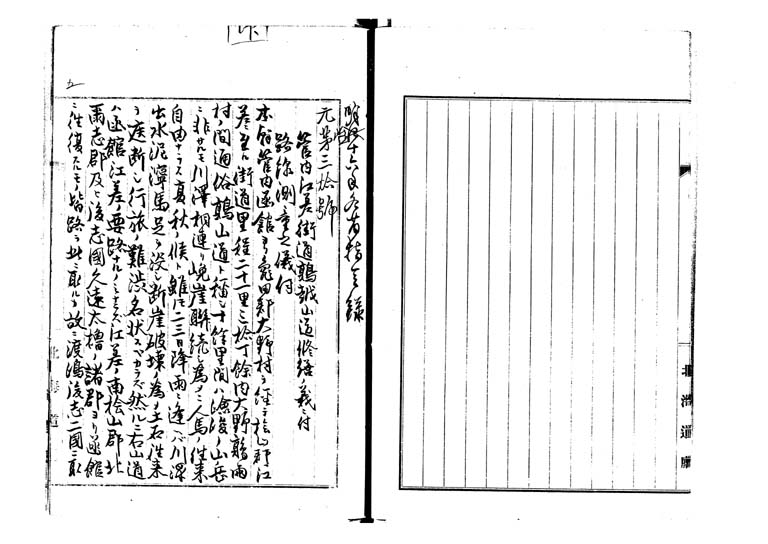 明治十六年各省指令録
元第三拾號
管内江差街道鶉越山道修繕ノ義ニ付
路線測量之儀付
本廳管内函館ヨリ亀田郡大野村ヲ経テ桧山郡江
差ニ至ル街道里程二十一里三拾丁餘内大野鶉両
村ノ間通俗鶉山道ト稱シ十餘里間ハ險峻ノ山岳
ニ非サルモ川澤相連リ峻崖聯続シ為メニ人馬ノ徃来
自由ナラス夏秋ノ候ト雖モ二三日降雨ニ逢ヘハ川澤
出水泥濘馬足ヲ没シ断崖破壊ノ為メ土石徃来
ヲ疾断シ行旅ノ難渋名状スヘカラス然ルニ右山道
ハ函館江差ノ要路ナルノミナラス江差ノ南桧山郡北
爾志郡及ヒ後志國久遠太櫓ノ諸郡ヨリ函館
ニ徃復スルモノ皆路ヲ此ニ取ル故ニ渡島後志二國ニ取
五
北海道廳